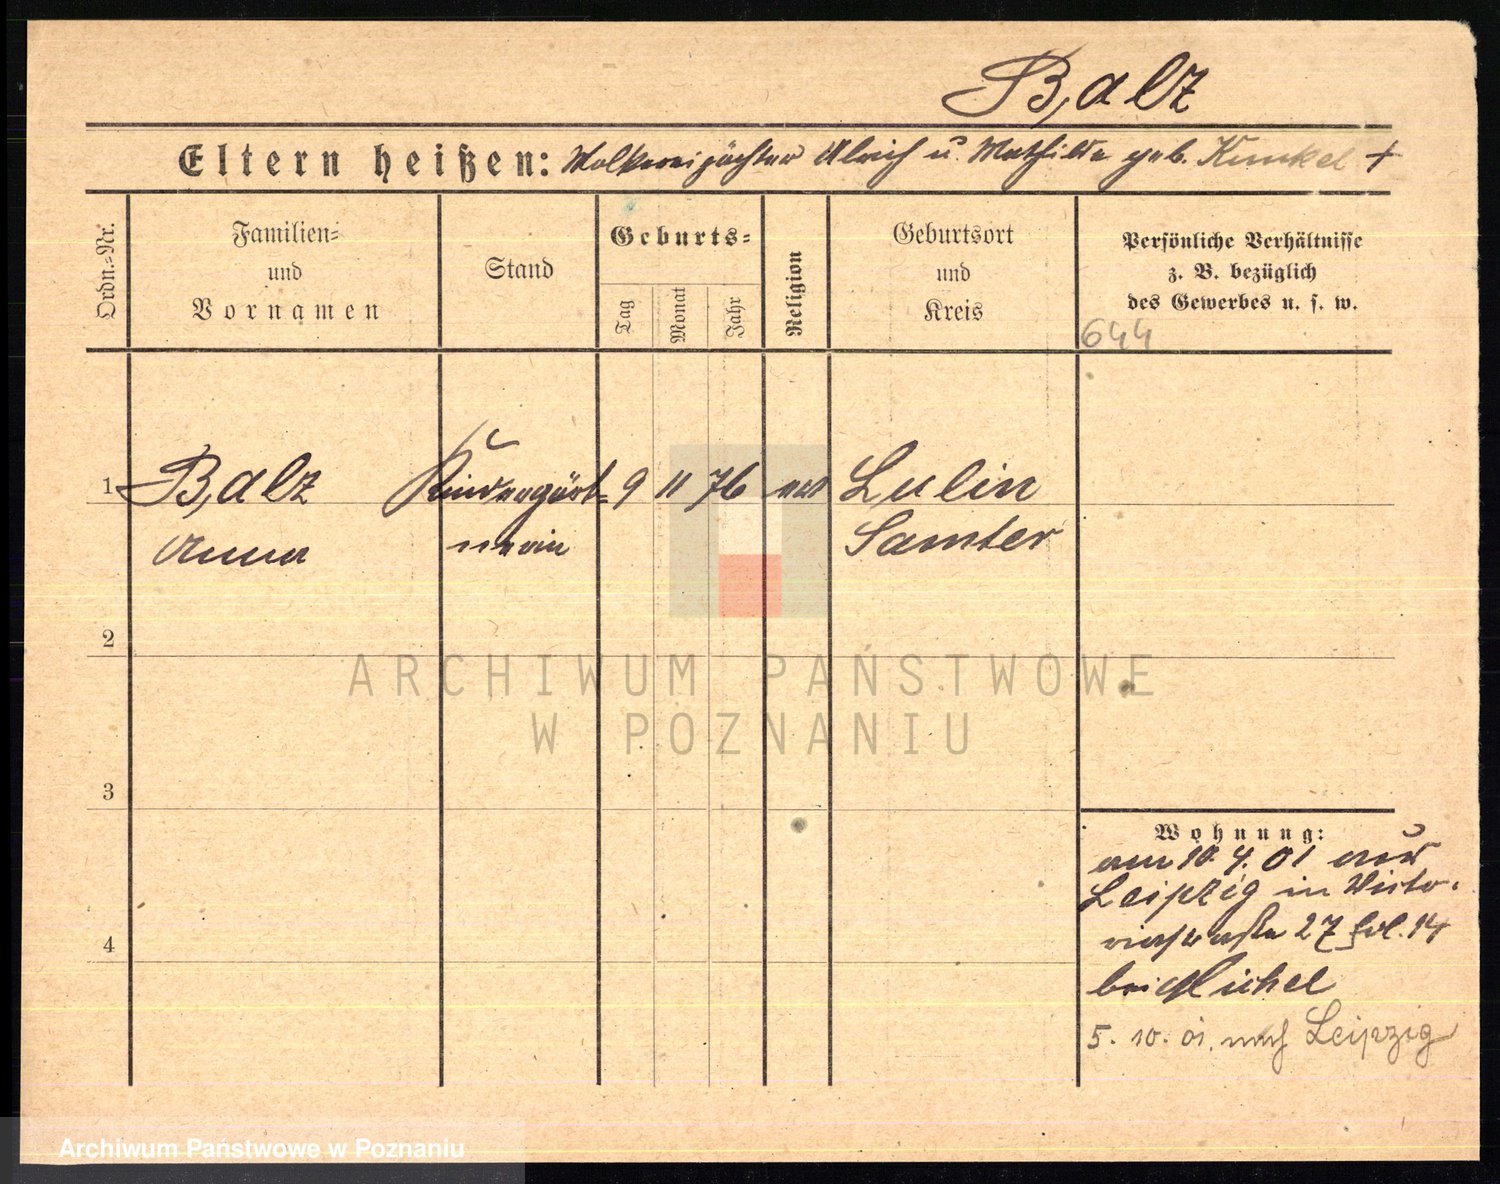 Balz
Eltern heißen: Molkereipächter Ulrich u. Mathilde geb. Kunkel +
Ordn.-Nr.
Familien-
und
Vornamen
Stand
Geburts-
Tag
Monat
Jahr
Religion
Geburtsort
und
Kreis
Persönliche Verhältnisse
z. B. bezüglich
des Gewerbes u. s. w.
644
1 Balz Kindergärt- 9 11 76 ev Lulin
Anna nerin Samter
2
3
4
Wohnung:
am 10. 4. 01 aus
Leipzig in Victo-
riastraße 27 14
bei Michel
5. 10. 01. nach Leipzig
ARCHIWUM PAŃSTWOWE
W POZNANIU
Archiwum Państwowe w Poznaniu